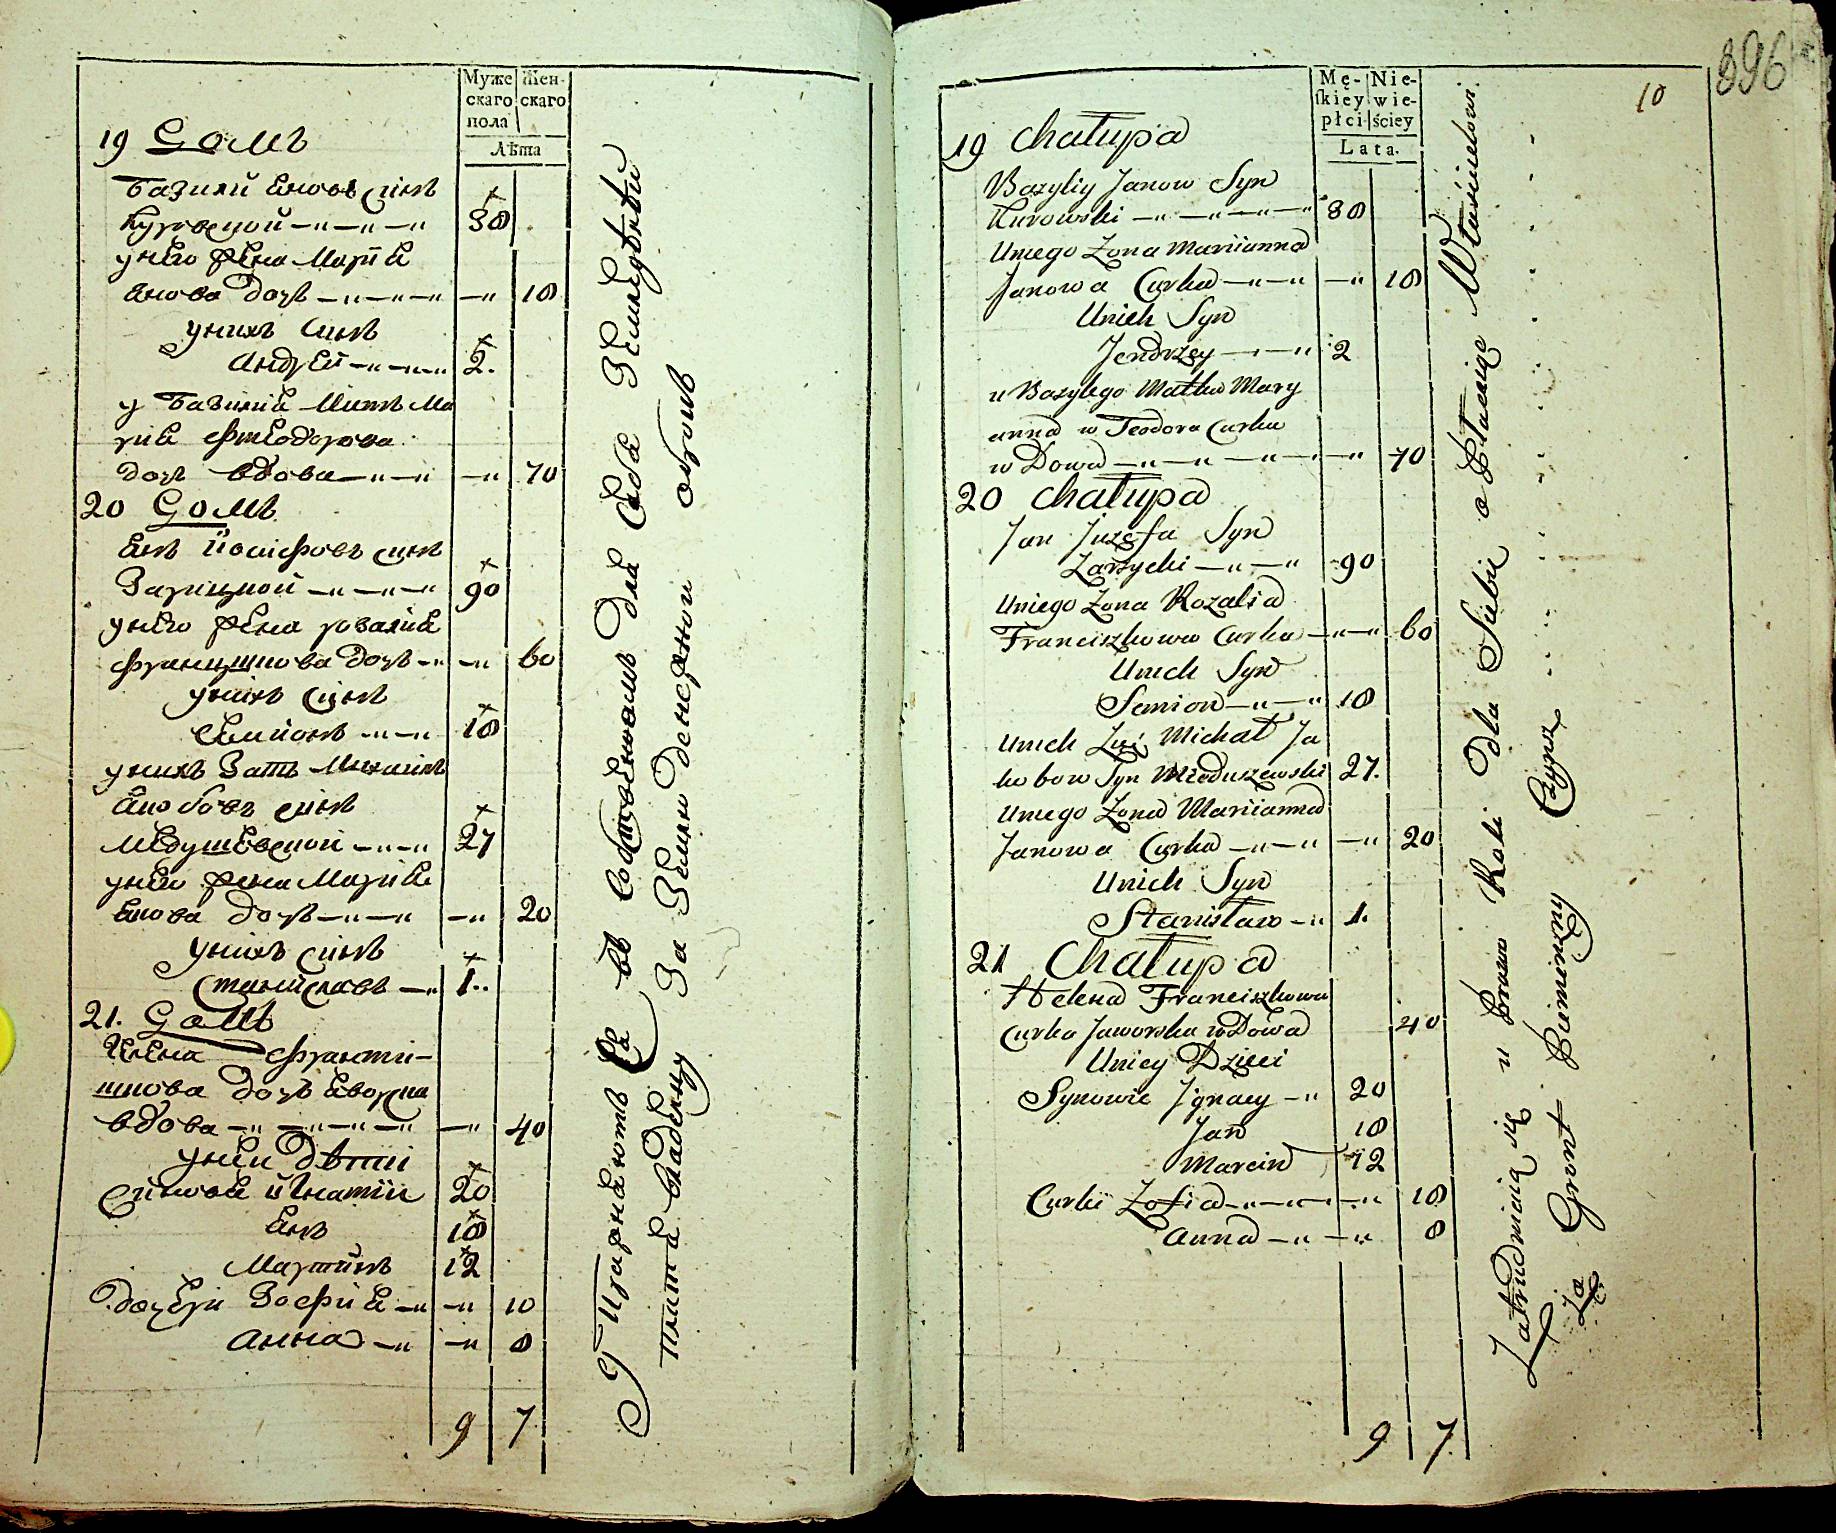 Муже
скаго
пола
Жен-
скаго
Лѣта
19 Домъ
Базилй Яновъ синъ
Куровской 38
у него жена Марїя
Янова дочъ 18
у нихъ синъ
Андрей 2.
у Базилїя Мать Ма
рия Фтеодорова
дочъ вдова 70
20 Домъ
Янъ Йосифовъ синъ
Зарицкой 90
у него жена розалїя
францишкова дочъ 60
у нихъ синъ
Семионъ 18
у нихъ Зать Михаилъ
Якобовъ синъ
Медушевской 27
у него жена Марїя
Янова дочъ 20
у нихъ синъ
Станиславъ 1..
21. Домъ
Елена Франти-
шкова дочъ Яворска
вдова 40
у ней дѣти
Синовя Игнатїи 20
Янъ 18
Мартинъ 12
дочери Зофия 10
Анна 8
9 7
Упражняютъ ся въ собственномъ для себя Земледѣлїи
платя владелцу За Землю денежной оброкъ
896
10
Mę-
skiey
płci
Nie-
wie-
ściey
Lata.
19 Chałupa
Bazyliy Janow Syn
Kurowski 38
Uniego Żona Mariianna
Janowa Curka 18
Unich Syn
Jendrzey 2
u Bazylego Matka Mary
anna w Teodora Curka
wDowa 70
20 Chałupa
Jan Juzefa Syn
Zarzycki 90
Uniego Żona Rozalia
Franciszkowa Curka 60
Unich Syn
Semion 18
Unich Zięć Michał Ja
kobow Syn Mieduszewski 27.
Uniego Żona Mariianna
Janowa Curka 20
Unich Syn
Stanisław 1.
21 Chałupa
Helena Franciszkowa
Curka Jaworska wDowa 40
Uniey Dzieci
Synowie Ignacy 20
Jan 18
Marcin 12
Curki Zofia 10
Anna 8
9 7
Zatrudniaią się u Prawo Roli dla Siebie a Płacąc Właścicielowi
Za Gront Pienieżny Czynsz